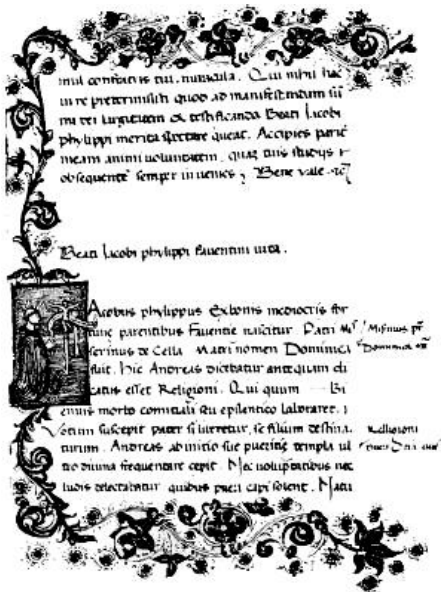 mul contractis tui. miracula. Qui nihil hac
in re pretermisisti quod ad manifestandum
mi dei largitatem & testificanda Beati Jacobi
phylippi merita spectare queat. Accipies
meam animi voluntatem, quae tuis studijs
obsequente semper invenies; Bene vale
Beati Jacobi phylippi faventini vita.
Jacobus phylippus Ex bonis mediocris for
tune parentibus Faventie nascitur Patri
de Cella Matri nomen Dominica
fuit. Hic Andreas dicebatur ante quum di
catus esset Religioni. Qui quum Bi
ennis morbo comitiali seu epilentico laboraret.
votum suscepit pater si viveretur, se filium destina
turum. Andreas ab initio sue pueritie templa ul
tro divina frequentare cepit. Nec voluptatibus nec
ludis delectabatur quibus pueri capi solent. Natu
Dominica
Relligioni